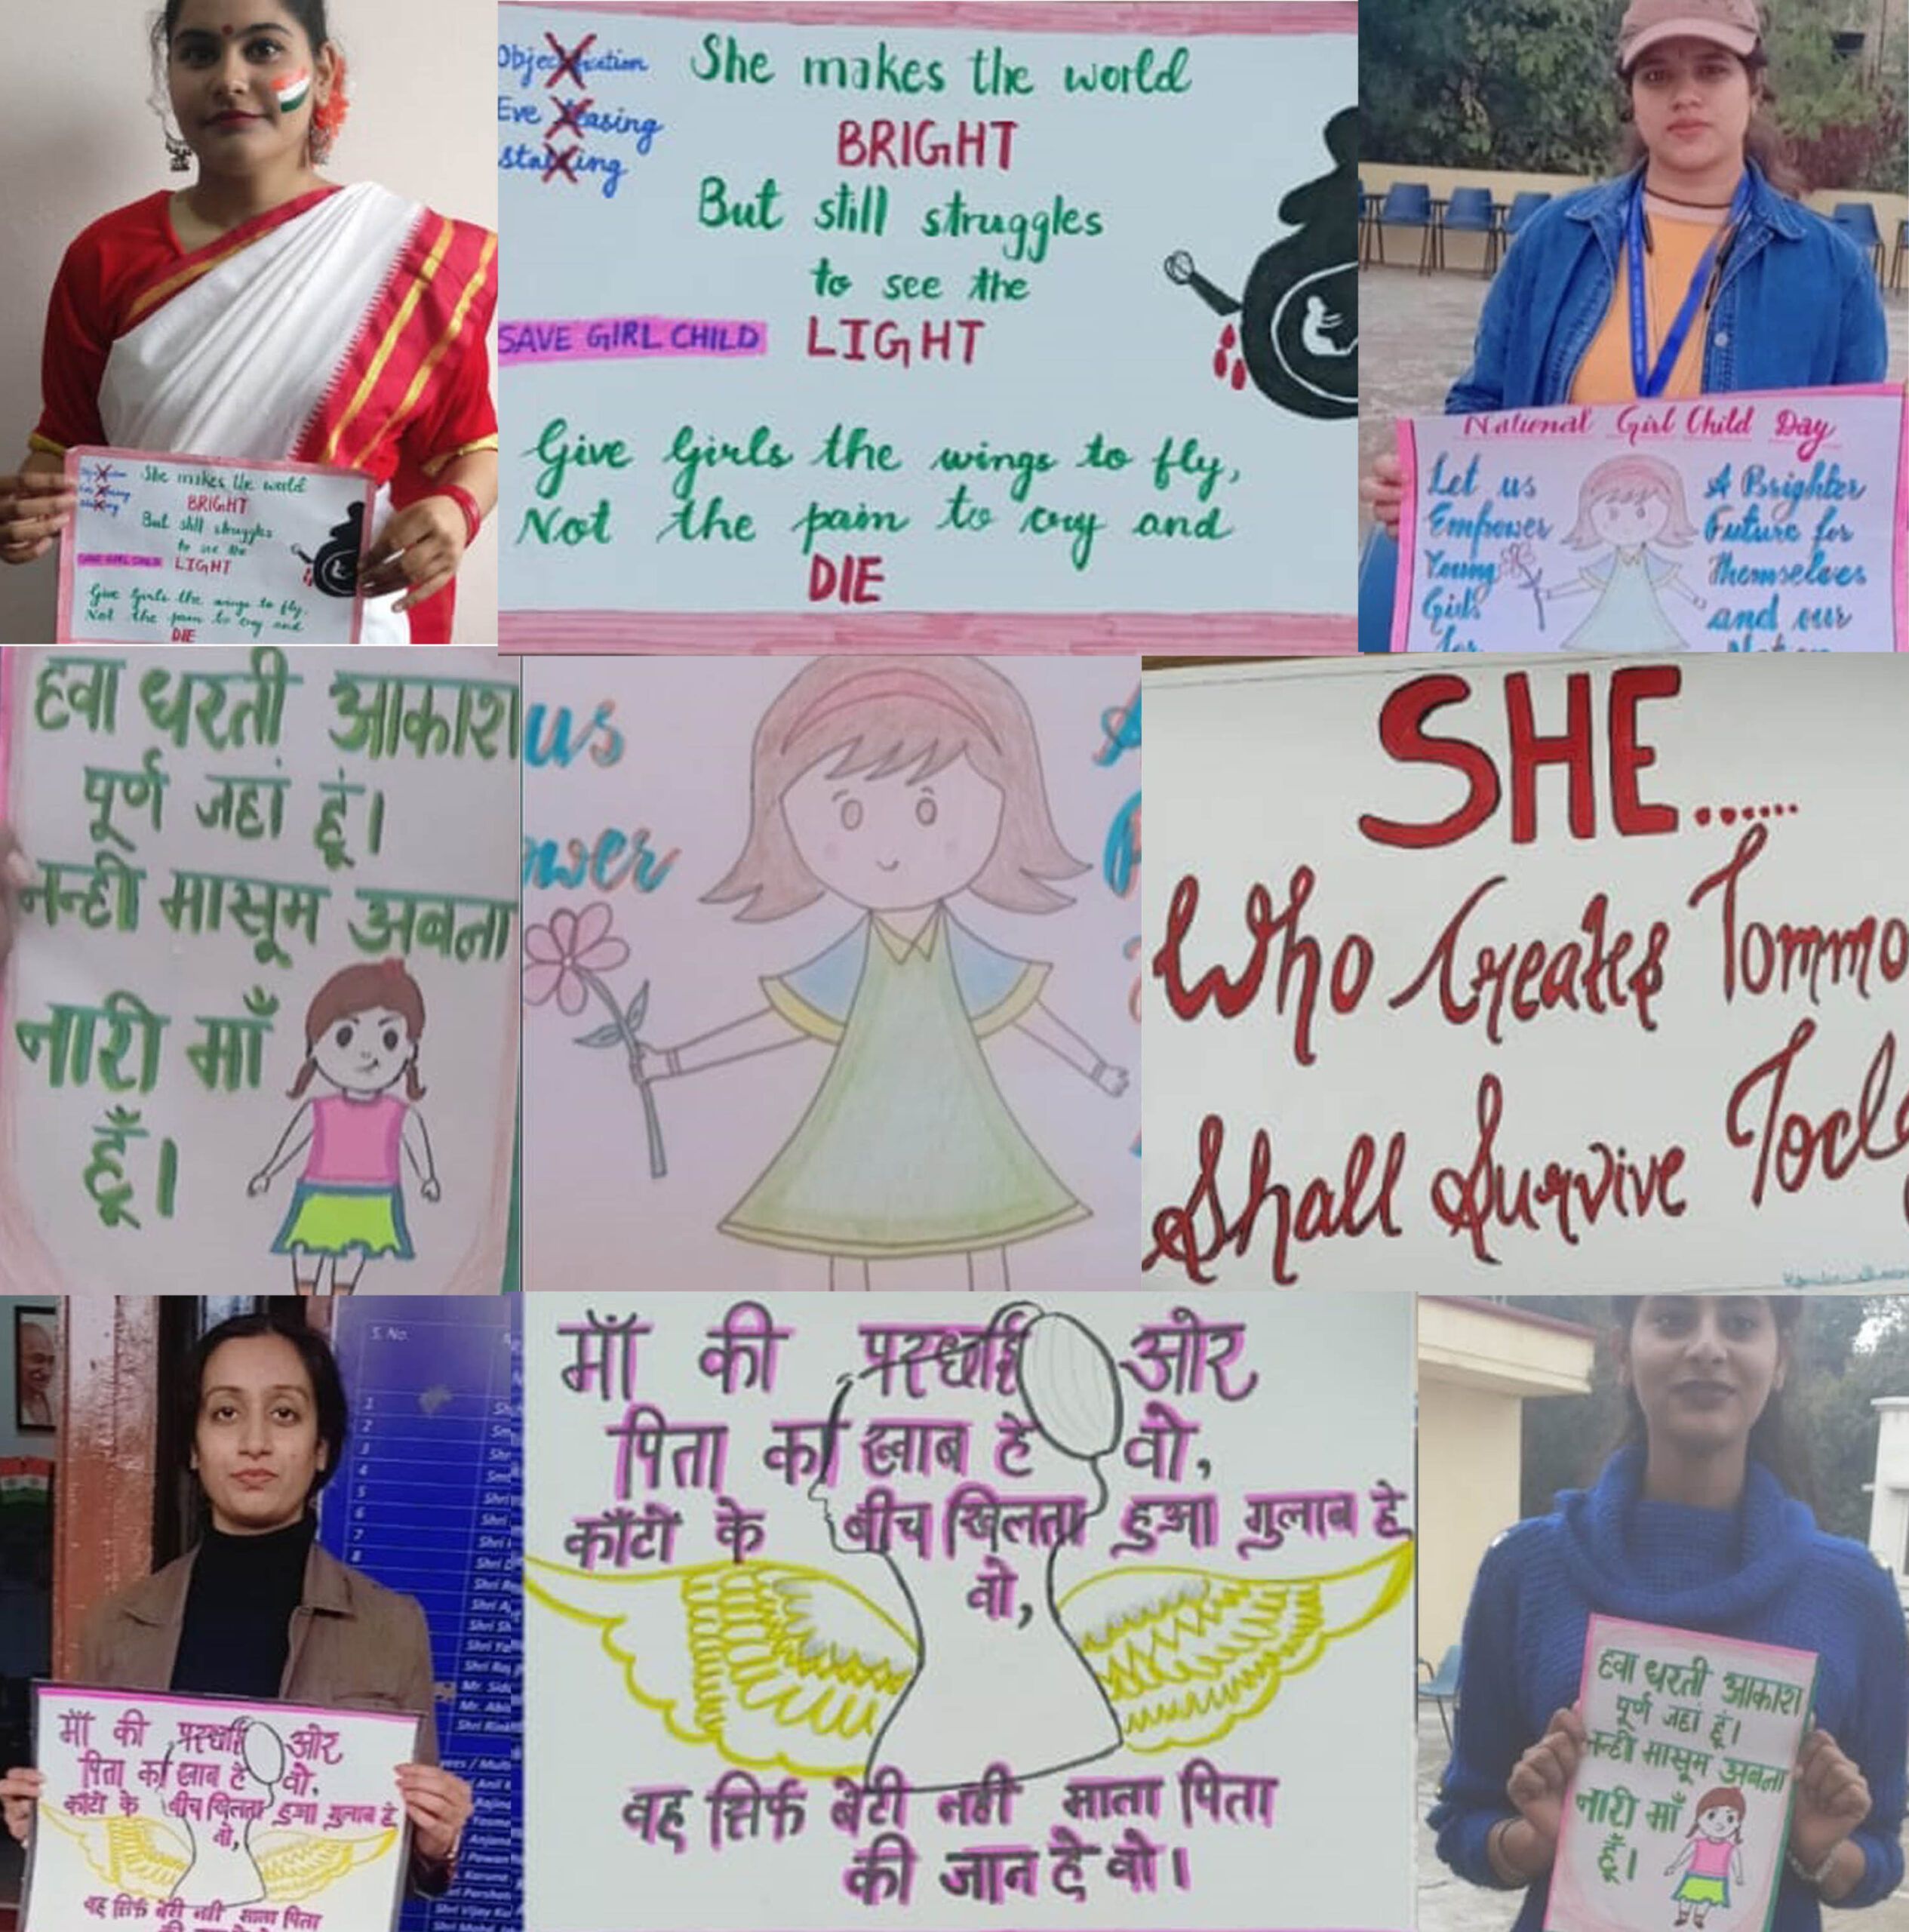 She makes the world
BRIGHT
But still struggles
to see the
SAVE GIRL CHILD LIGHT
Give Girls the wings to fly,
Not the pain to cry and
DIE
Objectification
Eve teasing
Stalking
She makes the world
BRIGHT
But still struggles
to see the
SAVE GIRL CHILD LIGHT
Give Girls the wings to fly,
Not the pain to cry and
DIE
National Girl Child Day
Let us
Empower
Young
Girls
for
A Brighter
Future for
Themselves
and our
हवा धरती आकाश
पूर्ण जहां हूं।
नन्ही मासूम अबला
नारी माँ
हूँ।
us
wer
SHE......
Who Creates Tommo
Shall Survive Tod
S. No.
1
2
3
4
5
6
7
8
Shri
माँ की ओर
पिता का ख्वाब हे वो,
काँटों के बीच खिलता हुआ गुलाब हे
वो,
वह सिर्फ बेटी नही माता पिता
माँ की ओर
पिता का ख्वाब हे वो,
काँटों के बीच खिलता हुआ गुलाब हे
वो,
वह सिर्फ बेटी नही माता पिता
की जान हे वो।
हवा धरती आकाश
पूर्ण जहां हूं।
नन्ही मासूम अबला
नारी माँ
हूँ।